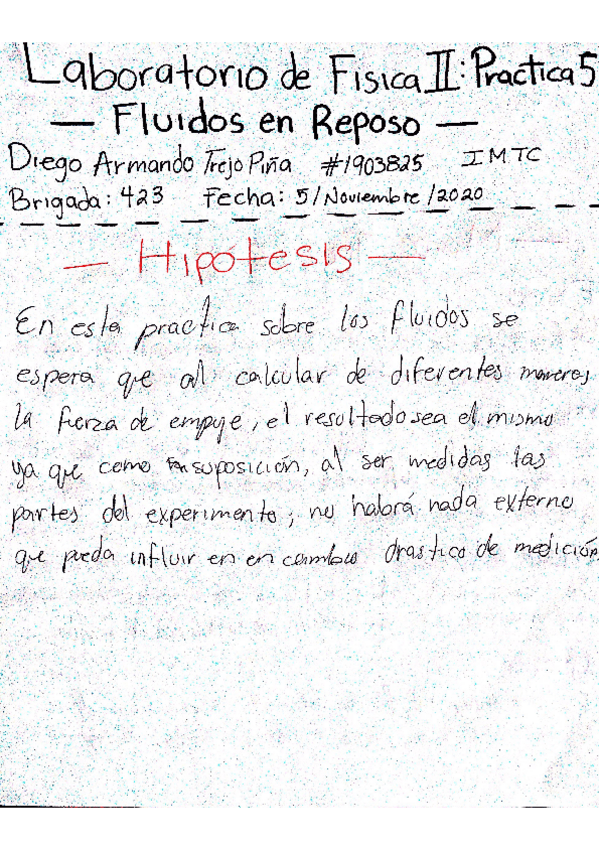 Laboratorio de Fisica II: Practica 5
— Fluidos en Reposo —
Diego Armando Trejo Piña #1903825 IMTC
Brigada: 423 Fecha: 5/Noviembre/2020
— Hipótesis —
En esta practica sobre los fluidos se
espera que al calcular de diferentes maneras
la fuerza de empuje, el resultado sea el mismo
ya que como suposición, al ser medidas las
partes del experimento, no habrá nada externo
que pueda influir en en cambio drastico de medición